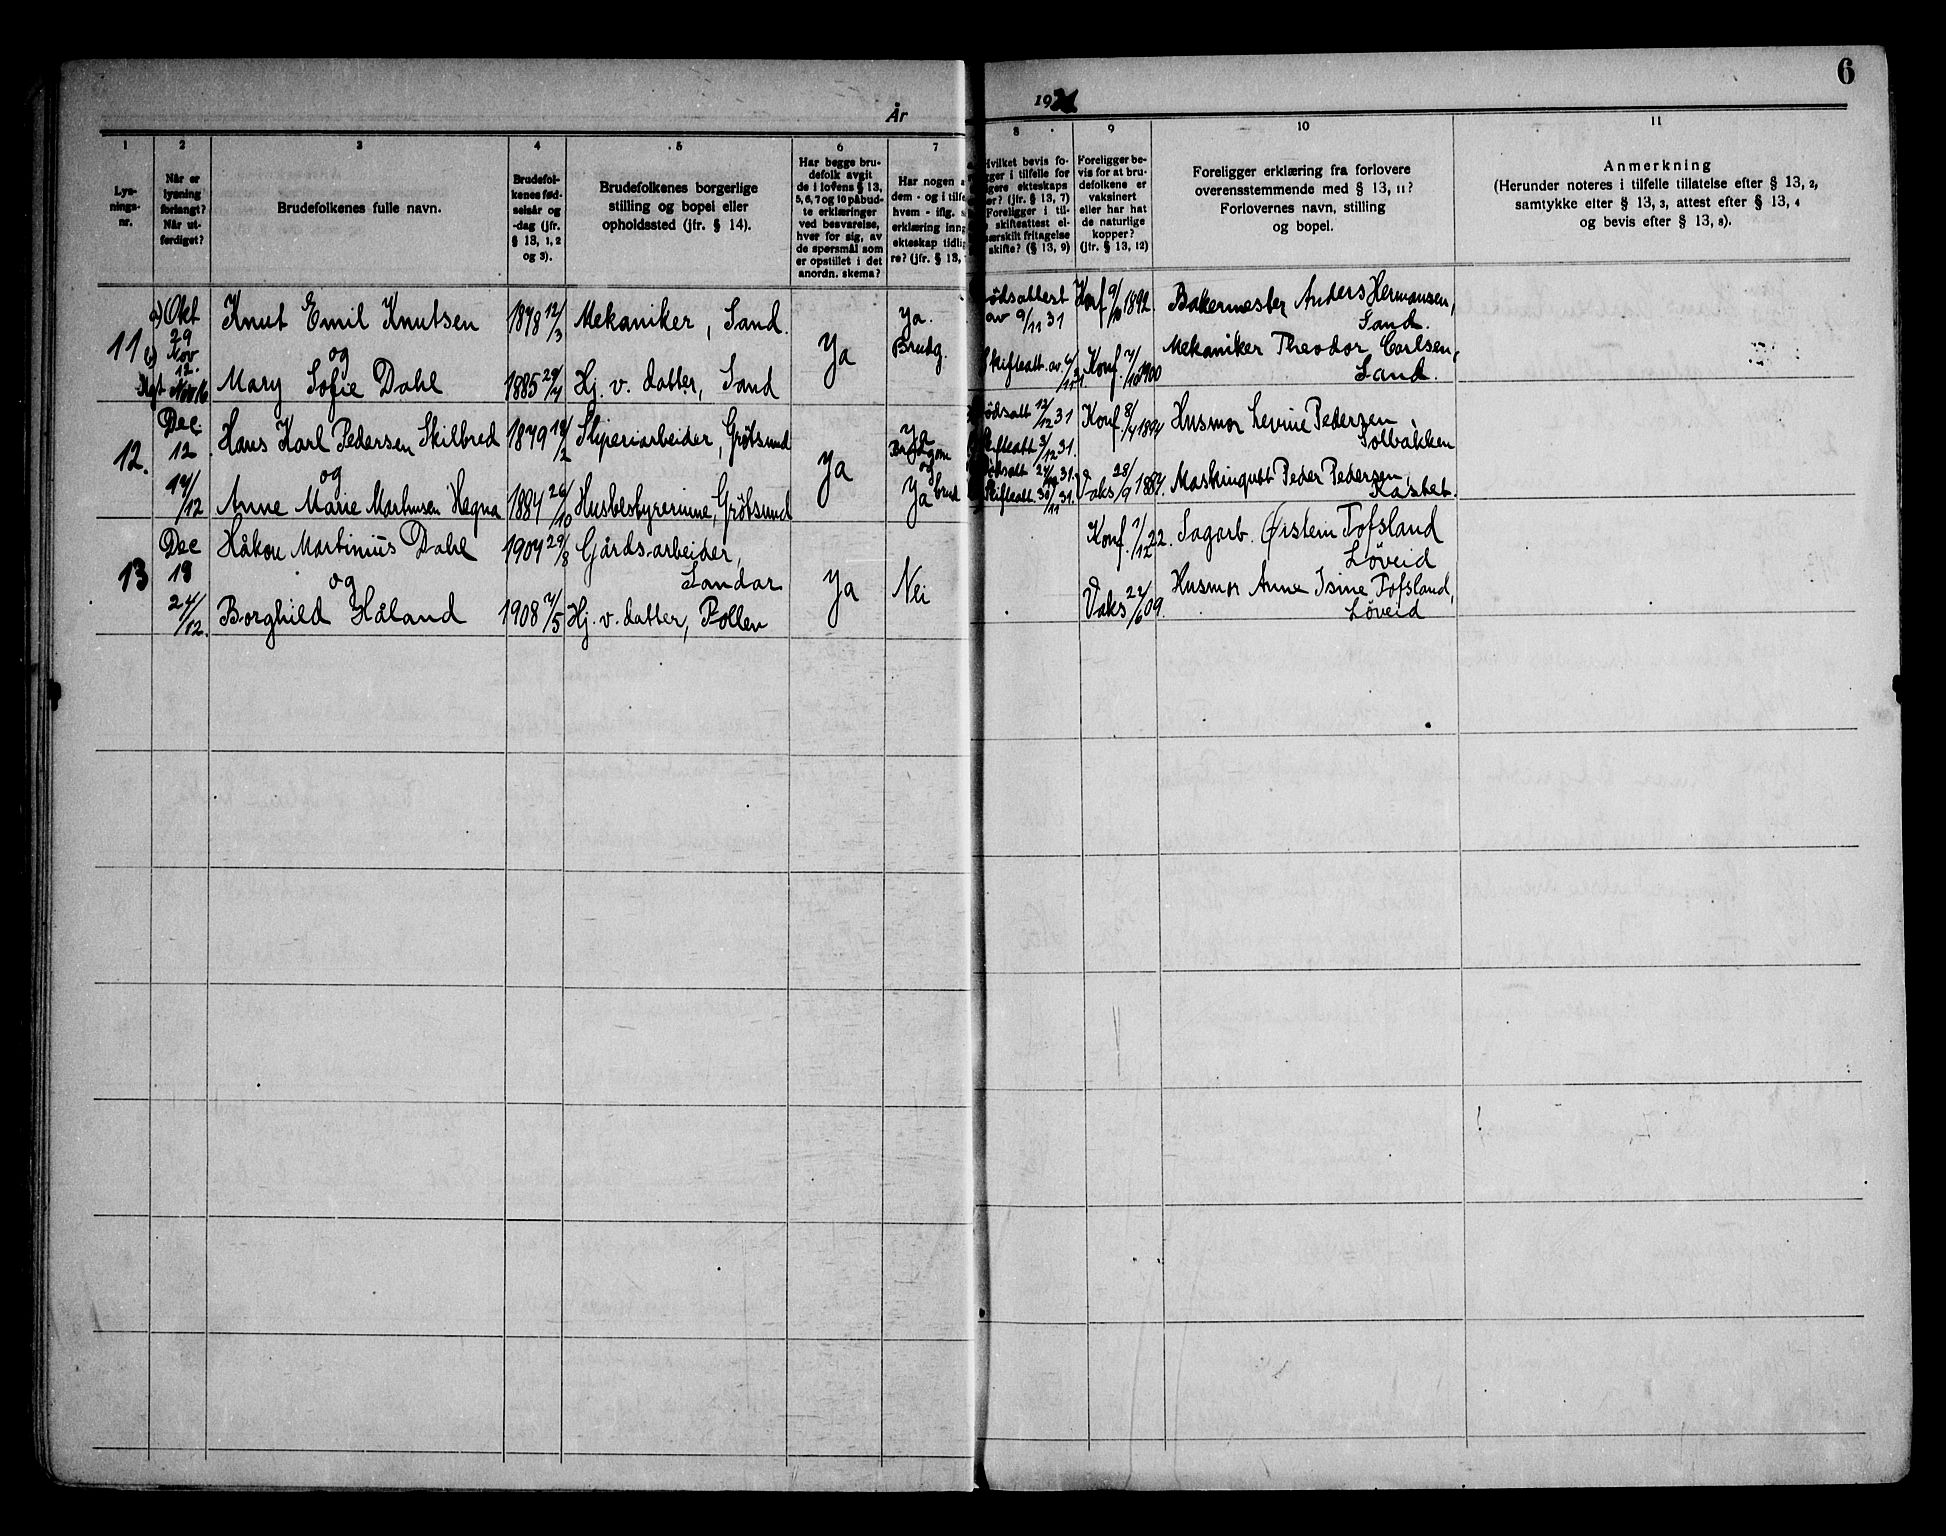 6
År
1931
1
2
3
4
5
6
7
8
9
10
11
Lys-
nings-
nr.
Når er
lysning
forlangt?
Når ut-
ferdiget?
Brudefolkenes fulle navn.
Brudefol-
kenes fød-
selsår og
-dag (jfr.
§ 13, 1, 2
og 3).
Brudefolkenes borgerlige
stilling og bopel eller
opholdssted (jfr. § 14).
Har begge bru-
defolk avgit
de i lovens § 13,
5, 6, 7 og 10 påbud-
te erklæringer
ved besvarelse,
hver for sig, av
de spørsmål som
er opstillet i det
anordn. skema?
Har nogen
dem - og i tilf
hvem - iflg.
erklæring inng
ekteskap tidli
re? (jfr. § 13,
Hvilket bevis fo-
gger i tilfelle for
gere ekteskaps
er? (jfr. § 13, 7)
Foreligger i til-
skifteattest el-
særskilt fritagelse
skifte? (§ 13, 9)
Foreligger be-
vis for at bru-
defolkene er
vaksinert
eller har hat
de naturlige
kopper?
(jfr. § 13, 12)
Foreligger erklæring fra forlovere
overensstemmende med § 13, 11?
Forlovernes navn, stilling
og bopel.
Anmerkning
(Herunder noteres i tilfelle tillatelse efter § 13, 2,
samtykke efter § 13, 3, attest efter § 13, 4
og bevis efter § 13, 8).
11
Okt
29
Nov
12.
Nov 16
Knut Emil Knutsen
og
Mary Sofie Dahl
1878 12/3
1885 29/4
Mekaniker, Sand.
Hj. v. datter, Sand
Ja
Ja.
Brudg.
ødsattest
av 9/11 31
Skifteatt. av
Konf 9/10 1892
Konf. 7/10 1900
Bakermester Anders Hermansen,
Sand.
Mekaniker Theodor Carlsen,
Sand.
12.
Dec.
12
14/12
Hans Karl Pedersen Skilbred
og
Anne Marie Martinsen Hegna
1879 18/2
1884 26/10
Sliperiarbeider, Grøtsund
Husbestyrerinne, Grøtsund
Ja
Ja
Brudgom
og
Ja brud
ødsatt 12/12 31
kifteatt 3/12 31.
Skifteatt 30/11 31.
Konf. 8/4 1894
Vaks 28/9 1884.
Husmor Levine Pedersen
Solbakken
Maskingutt Peder Pedersen,
Kastet.
13
Dec
18
24/12.
Håkon Martinius Dahl
og
Borghild Håland
1904 29/8
1908 7/5
Gårdsarbeider,
Sandar
Hj. v. datter, Pollen
Ja
Nei
Konf. 1/12 22.
Vaks 22/6 09.
Sagarb. Øistein Tofsland
Løveid
Husmor Anne Isine Tofsland,
Løveid